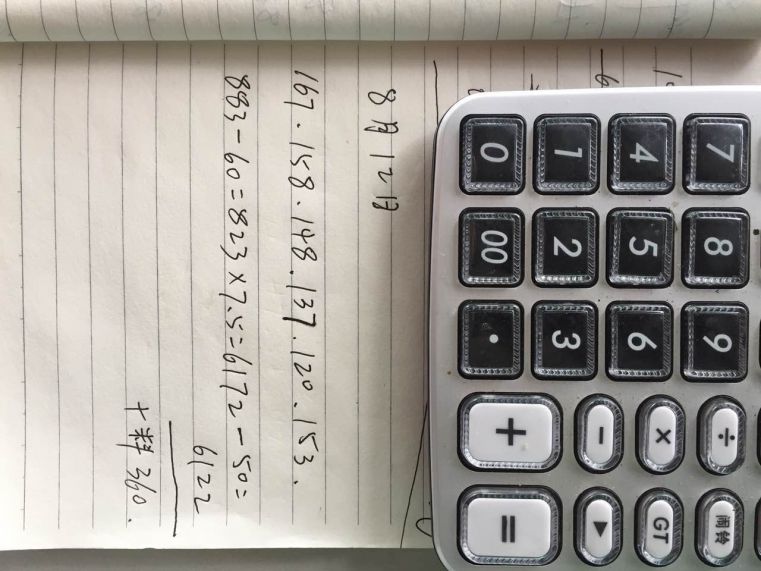 7 8 9 ÷ 闹铃
4 5 6 × GT
1 2 3 - ▶
0 00 . + =
8月12日
167.158.148.137.120.153.
883-60=823×7.5=6172-50=
6122
+ 360.